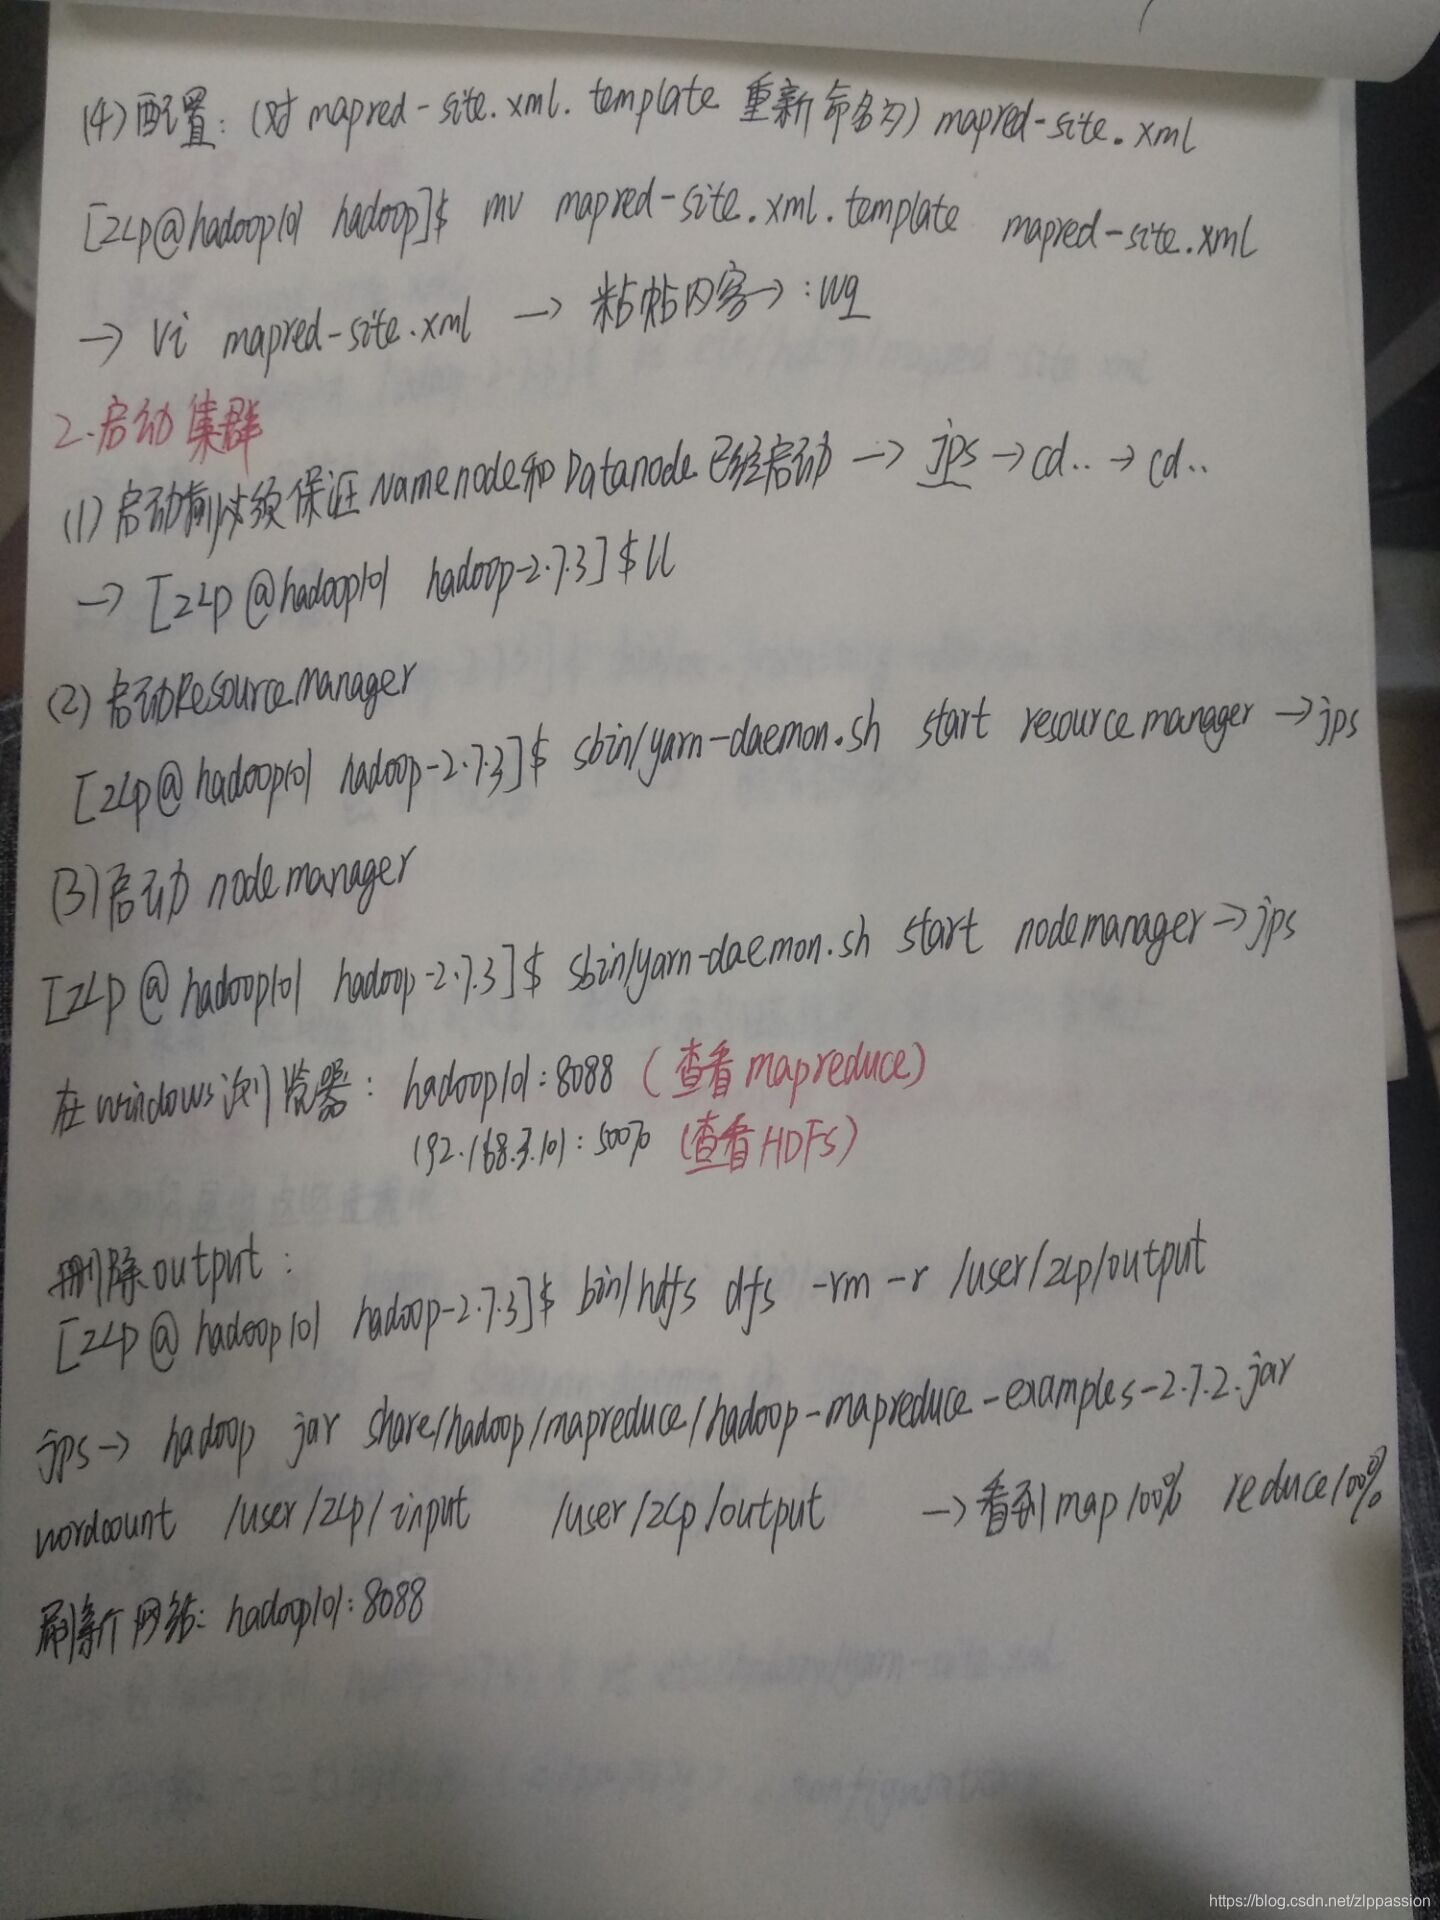 (4)配置:(对mapred-site.xml.template 重新命名为) mapred-site.xml
[zlp@hadoop101 hadoop]$ mv mapred-site.xml.template mapred-site.xml
→ vi mapred-site.xml → 粘帖内容→ :wq
2.启动集群
(1)启动前必须保证Namenode和Datanode已经启动 → jps → cd.. → cd..
→ [zlp@hadoop101 hadoop-2.7.3]$ ll
(2)启动Resourcemanager
[zlp@hadoop101 hadoop-2.7.3]$ sbin/yarn-daemon.sh start resourcemanager → jps
(3)启动nodemanager
[zlp@hadoop101 hadoop-2.7.3]$ sbin/yarn-daemon.sh start nodemanager → jps
在windows浏览器: hadoop101:8088 (查看mapreduce)
192.168.3.101:50070 (查看HDFS)
删除output:
[zlp@hadoop101 hadoop-2.7.3]$ bin/hdfs dfs -rm -r /user/zlp/output
jps→ hadoop jar share/hadoop/mapreduce/hadoop-mapreduce-examples-2.7.2.jar
wordcount /user/zlp/input /user/zlp/output → 看到map100% reduce100%
刷新网站: hadoop101:8088
https://blog.csdn.net/zlppassion